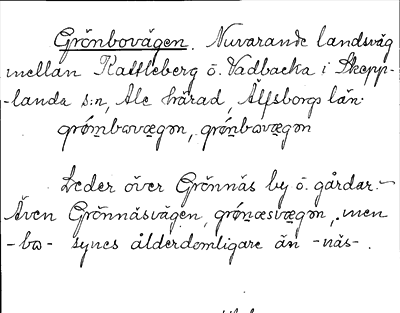 Grönbovägen. Nuvarande landsväg
mellan Kattleberg o. Vadbacka i Skepp-
-landa s:n, Ale härad, Älfsborgs län.
grǿm̥bωvægən, grǿn̥bωvægən
Leder över Grönnäs by o. gårdar.-
Även Grönnäsvägen, grǿn̥æsvægən, men
-bω- synes ålderdomligare än -näs-.